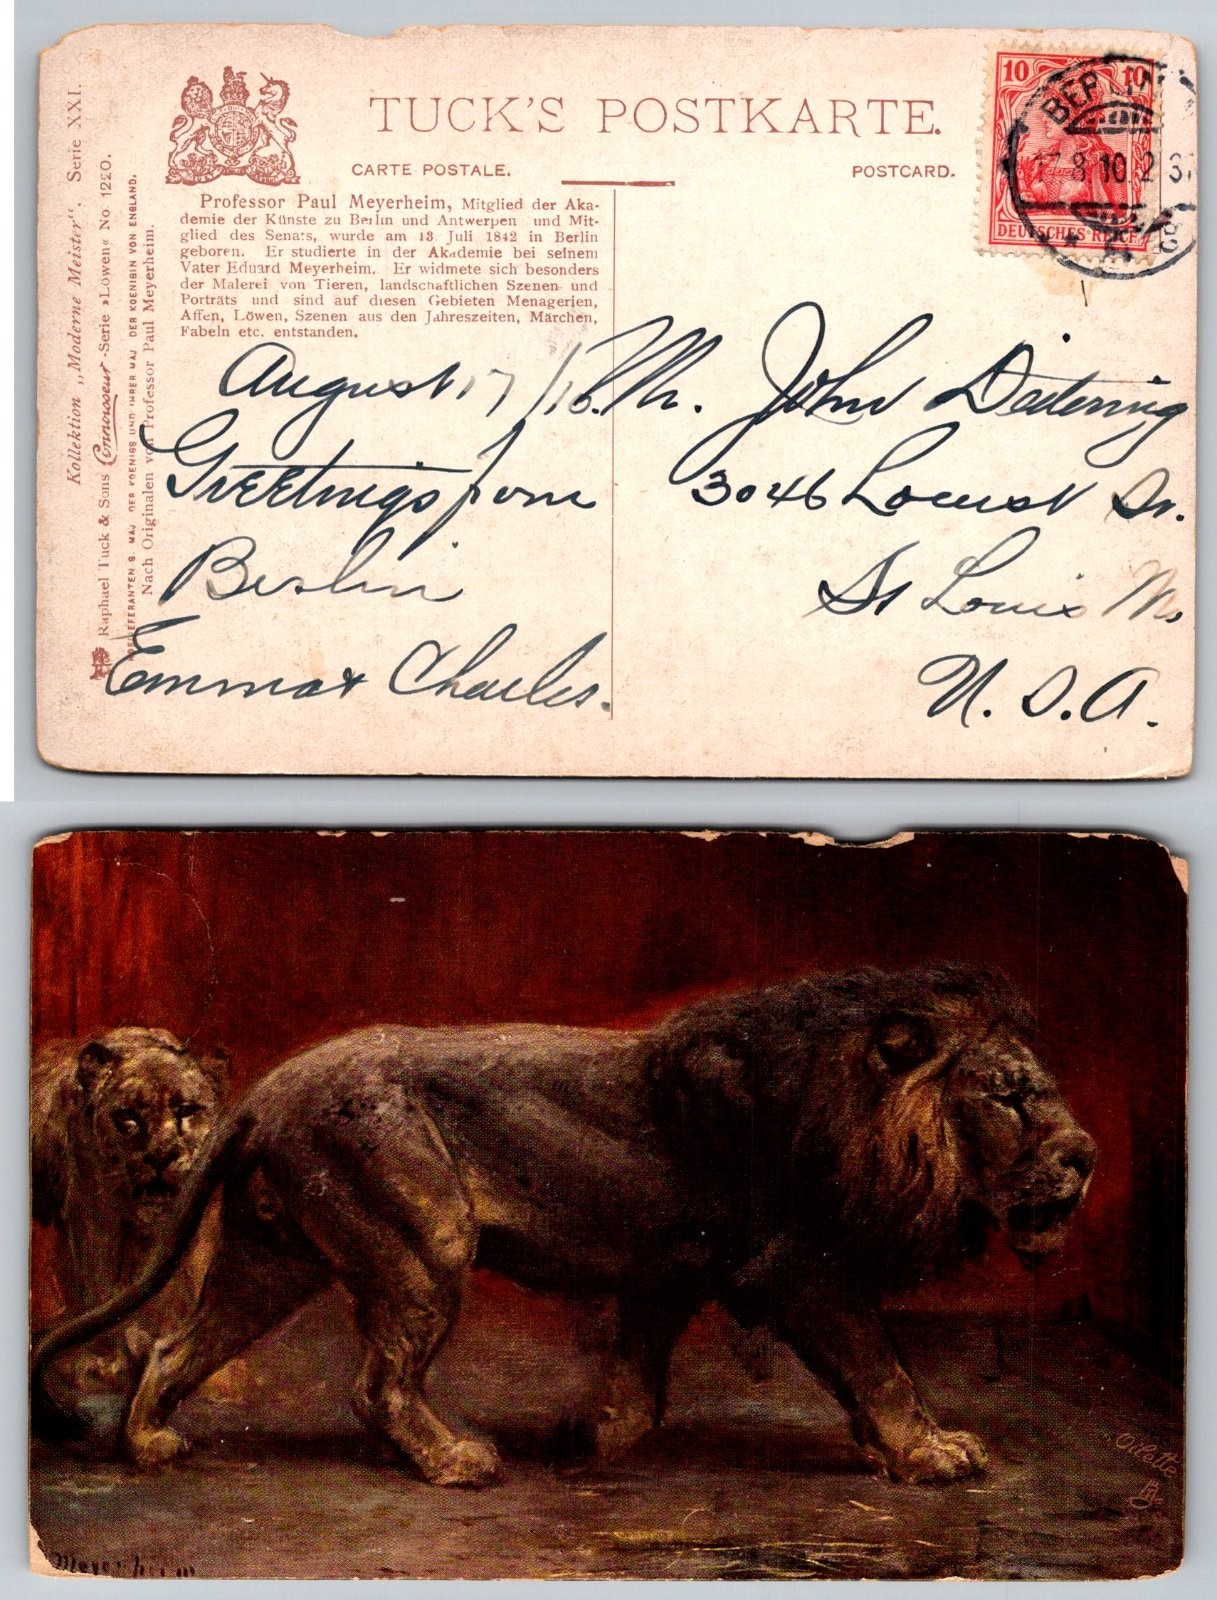 TUCK'S POSTKARTE.
CARTE POSTALE.
POSTCARD.
Professor Paul Meyerheim, Mitglied der Aka-
demie der Künste zu Berlin und Antwerpen und Mit-
glied des Senats, wurde am 13. Juli 1842 in Berlin
geboren. Er studierte in der Akademie bei seinem
Vater Eduard Meyerheim. Er widmete sich besonders
der Malerei von Tieren, landschaftlichen Szenen und
Porträts und sind auf diesen Gebieten Menagerien,
Affen, Löwen, Szenen aus den Jahreszeiten, Märchen,
Fabeln etc. entstanden.
Kollektion „Moderne Meister“. Serie XXI.
Raphael Tuck & Sons Connoisseur-Serie »Löwen« No 1220.
LIEFERANTEN S. MAJ. DER KOENIGS UND IHRER MAJ. DER KOENIGIN VON ENGLAND.
Nach Originalen von Professor Paul Meyerheim.
10 10
DEUTSCHES REICH
BERLIN
17.8.10.2-3
August 17/10.
Greetings from
Berlin
Emma & Charles.
Mr. John Deitering
3046 Locust St.
St Louis Mo
U.S.A.
Oilette
Meyerheim